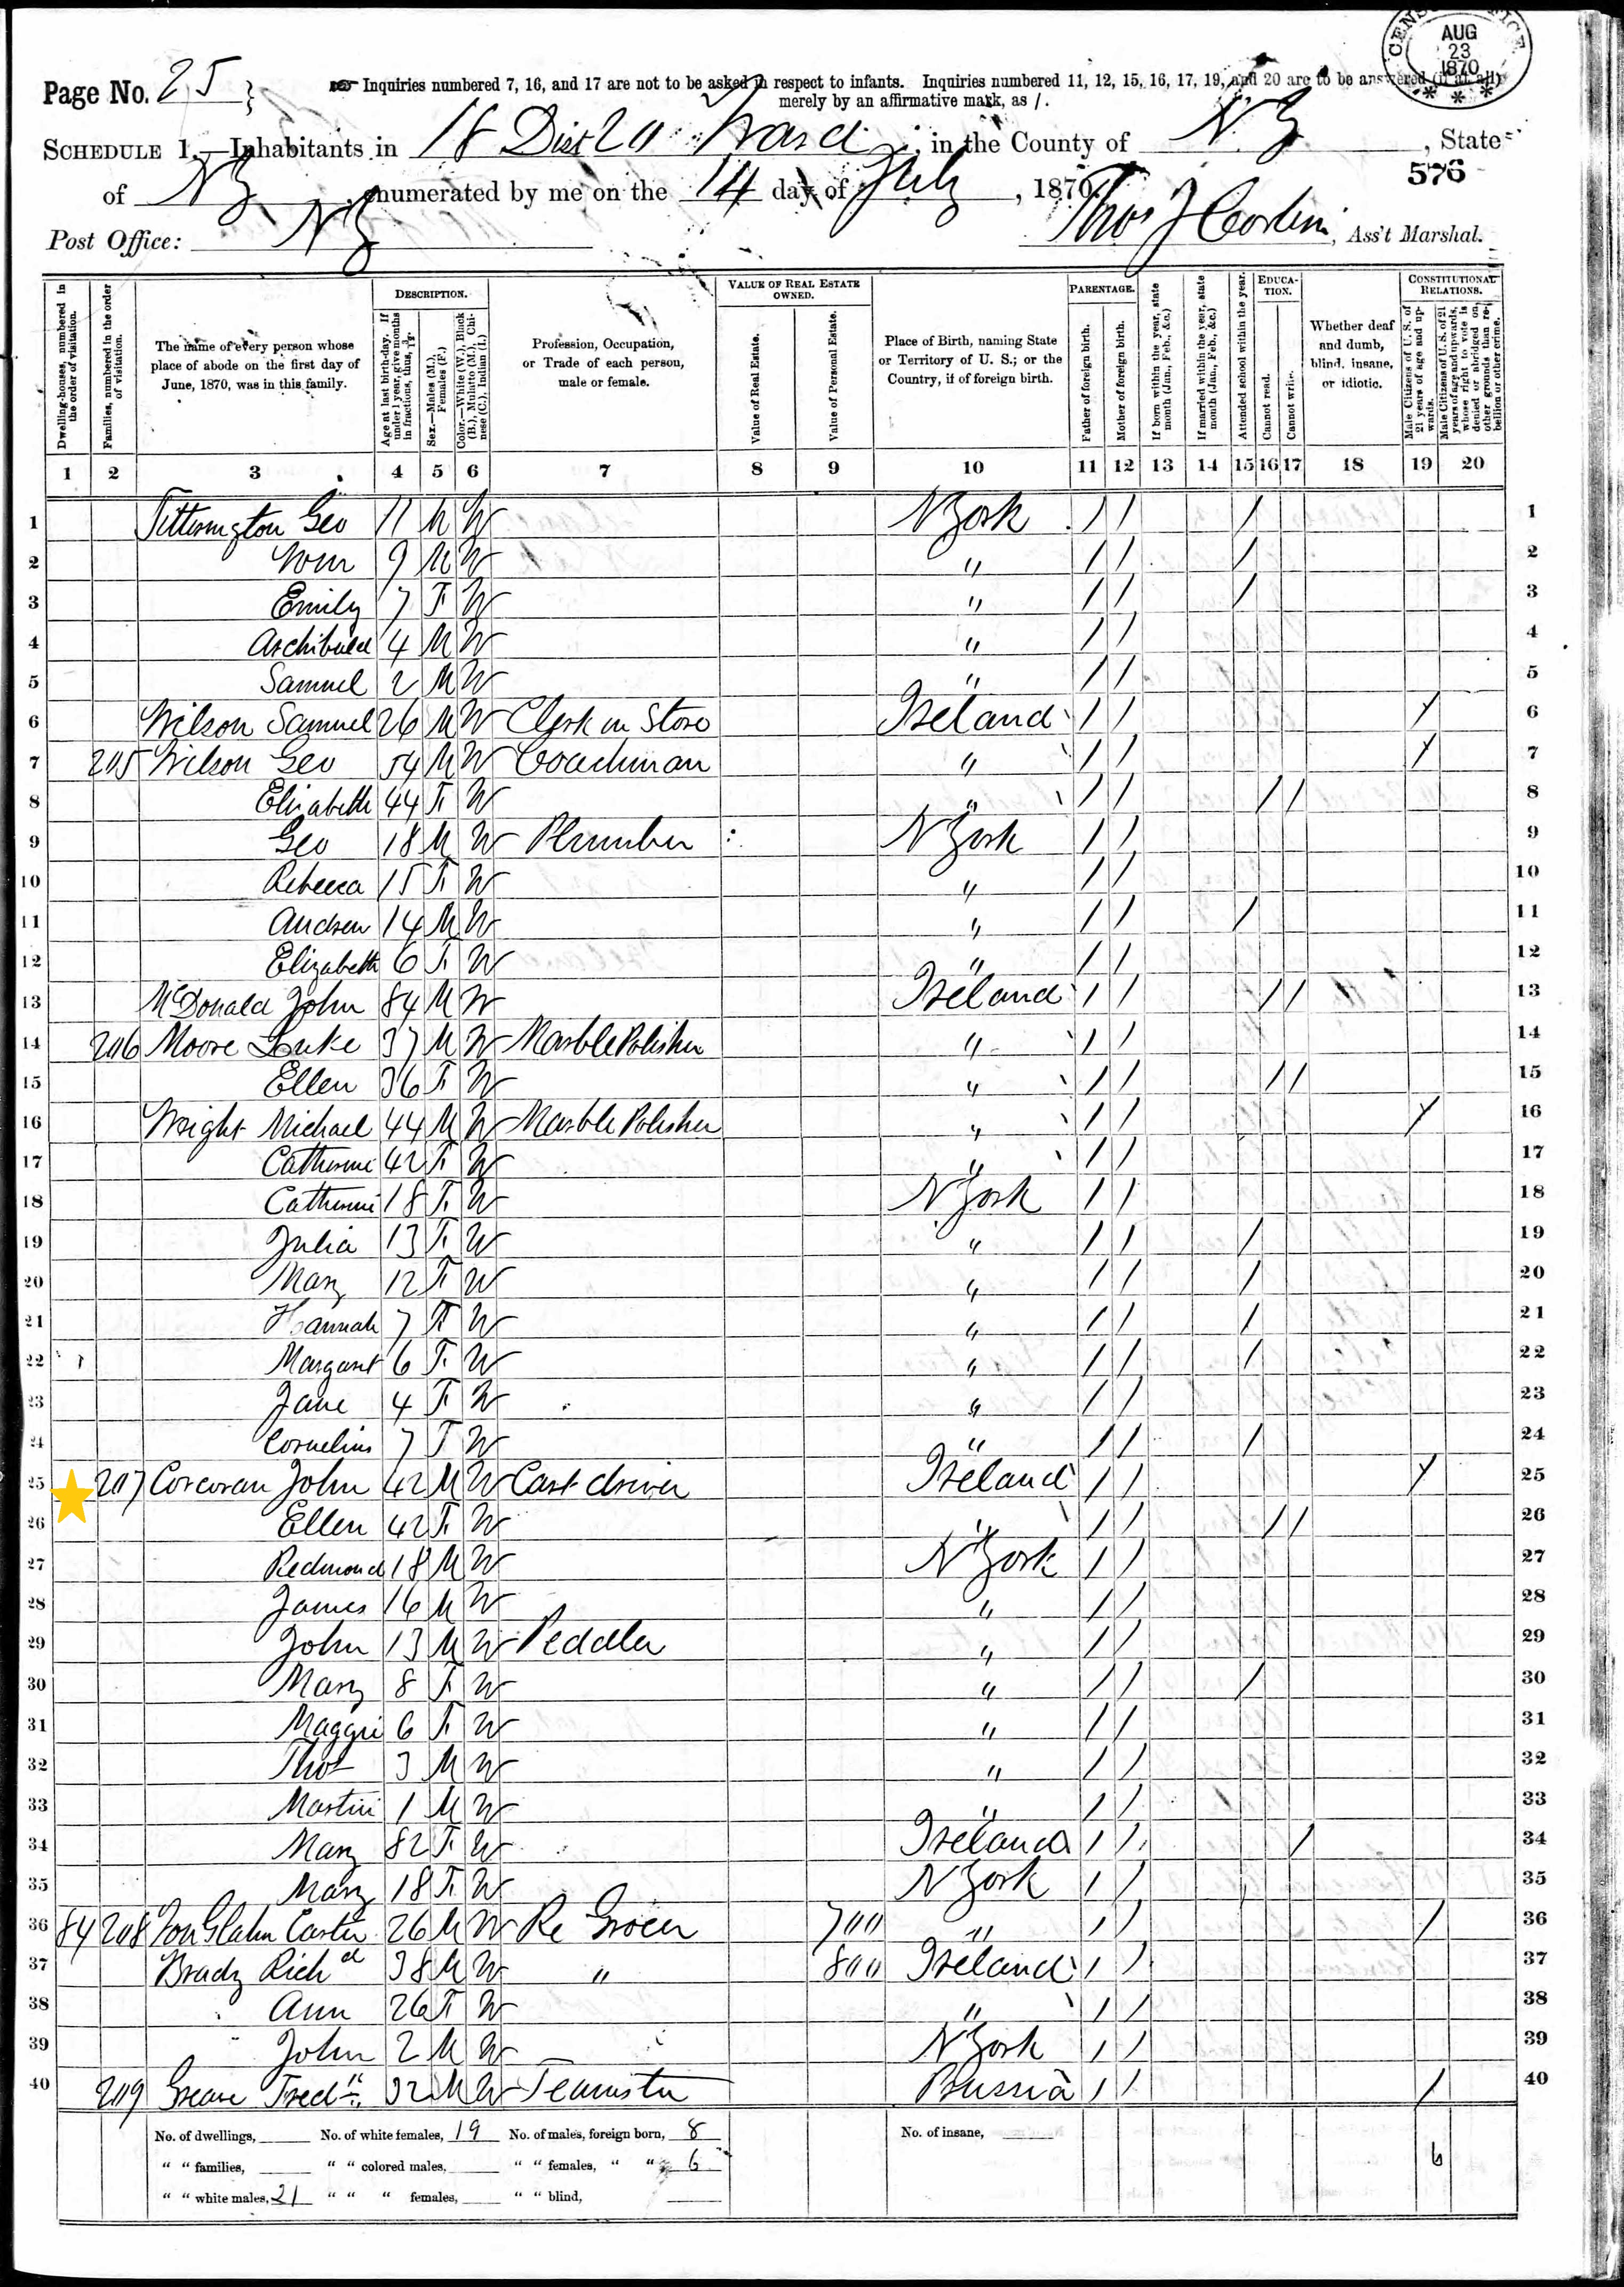 CENSUS OFFICE AUG 23 1870 * * *
Page No. 25 Inquiries numbered 7, 16, and 17 are not to be asked in respect to infants. Inquiries numbered 11, 12, 15, 16, 17, 19, and 20 are to be answered (if at all)
merely by an affirmative mark, as /.
SCHEDULE 1.—Inhabitants in 18 Dist 20 Ward, in the County of NY, State
576
of NY, enumerated by me on the 14 day of July, 1870.
Post Office: NY Thos J, Ass't Marshal.
DESCRIPTION. VALUE OF REAL ESTATE OWNED. PARENTAGE. EDUCATION. CONSTITUTIONAL RELATIONS.
Dwelling-houses, numbered in the order of visitation.
Families, numbered in the order of visitation.
The name of every person whose place of abode on the first day of June, 1870, was in this family.
Age at last birth-day. If under 1 year, give months in fractions, thus, 3/12.
Sex.—Males (M.), Females (F.)
Color.—White (W.), Black (B.), Mulatto (M.), Chinese (C.), Indian (I.)
Profession, Occupation, or Trade of each person, male or female.
Value of Real Estate.
Value of Personal Estate.
Place of Birth, naming State or Territory of U. S.; or the Country, if of foreign birth.
Father of foreign birth.
Mother of foreign birth.
If born within the year, state month (Jan., Feb., &c.)
If married within the year, state month (Jan., Feb., &c.)
Attended school within the year.
Cannot read.
Cannot write.
Whether deaf and dumb, blind, insane, or idiotic.
Male Citizens of U. S. of 21 years of age and upwards.
Male Citizens of U. S. of 21 years of age and upwards, whose right to vote is denied or abridged on other grounds than rebellion or other crime.
1 2 3 4 5 6 7 8 9 10 11 12 13 14 15 16 17 18 19 20
1 Titterington Geo 11 M W N York / / / 1
2 Wm 9 M W " / / / 2
3 Emily 7 F W " / / / 3
4 Archibald 4 M W " / / 4
5 Samuel 2 M W " / / 5
6 Wilson Samuel 26 M W Clerk in Store Ireland / / / 6
7 205 Wilson Geo 54 M W Coachman " / / / 7
8 Elizabeth 44 F W " / / / / 8
9 Geo 18 M W Plumber N York / / 9
10 Rebecca 15 F W " / / 10
11 Andrew 14 M W " / / / 11
12 Elizabeth 6 F W " / / 12
13 McDonald John 84 M W Ireland / / / / 13
14 206 Moore Luke 37 M W Marble Polisher " / / 14
15 Ellen 36 F W " / / / / 15
16 Wright Michael 44 M W Marble Polisher " / / / 16
17 Catherine 42 F W " / / 17
18 Catherine 18 F W N York / / 18
19 Julia 13 F W " / / / 19
20 Mary 12 F W " / / / 20
21 Hannah 7 F W " / / / 21
22 Margaret 6 F W " / / / 22
23 Jane 4 F W " / / 23
24 Cornelius 7 F W " / / / 24
25 207 Corcoran John 42 M W Cart driver Ireland / / / 25
26 Ellen 42 F W " / / / / 26
27 Redmond 18 M W N York / / 27
28 James 16 M W " / / 28
29 John 13 M W Peddler " / / 29
30 Mary 8 F W " / / / 30
31 Maggie 6 F W " / / 31
32 Thos 3 M W " / / 32
33 Martin 1 M W " / / 33
34 Mary 82 F W Ireland / / / 34
35 Mary 18 F W N York / / 35
36 84 208 Von Glahn 26 M W Re Grocer 700 " / / / 36
37 Brady Richd 38 M W " 800 Ireland / / 37
38 Ann 26 F W " / / 38
39 John 2 M W N York / / 39
40 209 Fred 32 M W Teamster Prussia / / / 40
No. of dwellings, No. of white females, 19 No. of males, foreign born, 8 No. of insane,
" " families, " " colored males, " " females, " " 6 6
" " white males, 21 " " " females, " " blind,